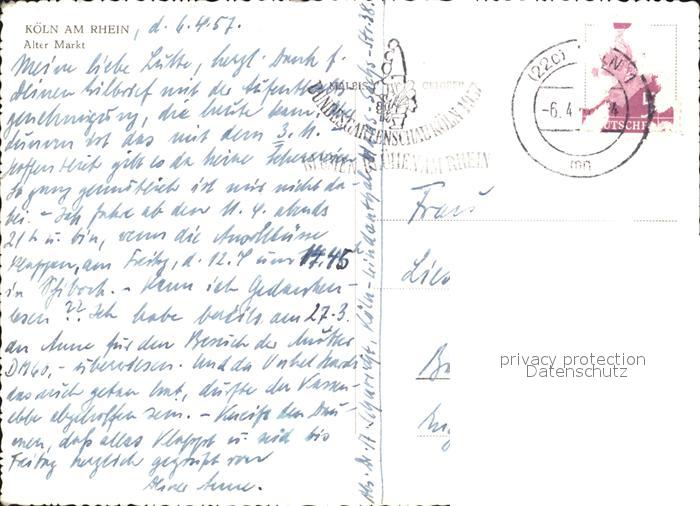 KÖLN AM RHEIN, d. 6.4.57.
Alter Markt
Meine liebe Lütte, herzl. Dank f.
Deinen Eilbrief mit der Aufenthalts-
genehmigung, die heute kam,
dumm ist das mit dem 3. M.
hoffentlich gibt es da keine
So ganz gemütlich ist mir nicht da-
bei. - Ich fahre ab dem 11.4. abends
21h u. bin, wenn die Anschlüsse
klappen, am Freitag, d. 12.4 um 17.45h
in - Kann ich Gedanken-
lesen?? Ich habe bereits am 27.3.
an Anne für den Besuch der Mutter
DM 60,- überwiesen. Und da
das auch getan hat, dürfte der Kassen-
ebbe abgeholfen sein. - den Dau-
men, daß alles klappt u. seid bis
Freitag herzlich gegrüßt von
Deiner Anne.
BUNDESGARTENSCHAU KÖLN 1957
AM RHEIN
(22c)
-6.4
DEUTSCHE
Frau
privacy protection
Datenschutz